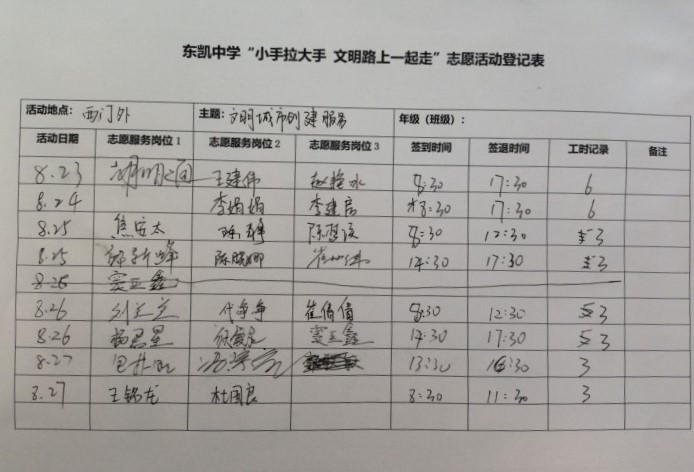 东凯中学“小手拉大手 文明路上一起走”志愿活动登记表
活动地点： 西门外 主题： 文明城市创建服务 年级（班级）：
活动日期 志愿服务岗位1 志愿服务岗位2 志愿服务岗位3 签到时间 签退时间 工时记录 备注
8.23 王建伟 赵艳水 8:30 17:30 6
8.24 李娟娟 李建房 8:30 17:30 6
8.25 焦安太 8:30 12:30 3
8.25 陈晓娜 14:30 17:30 3
8.25 窦正鑫
8.26 代争争 崔倩倩 8:30 12:30 3
8.26 杨昌星 窦正鑫 14:30 17:30 3
8.27 13:30 16:30 3
8.27 王铭龙 杜国良 8:30 11:30 3